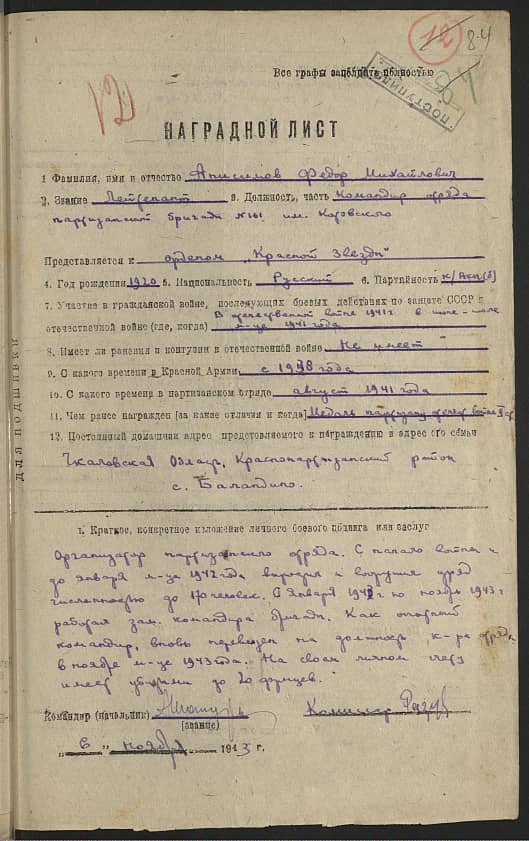 12 84
Все графы заполнять полностью
ПОСТУПИЛО
НАГРАДНОЙ ЛИСТ
1. Фамилия, имя и отчество Анисимов Федор Михайлович
2. Звание Лейтенант 3. Должность, часть Командир отряда
партизанской бригады №161 им. Котовского
Представляется к орденом „Красной Звезды"
4. Год рождения 1920 5. Национальность Русский 6. Партийность к/ВКП(б)
7. Участие в гражданской войне, последующих боевых действиях по защите СССР и
В отечественной войне 1941г. в июне-июле
отечественной войне (где, когда) м-це 1941 года
8. Имеет ли ранения и контузии в отечественной войне Не имеет
9. С какого времени в Красной Армии с 1938 года
10. С какого времени в партизанском отряде август 1941 года
11. Чем ранее награжден [за какие отличия и когда] Медаль партизану отечес. войны
12. Постоянный домашний адрес представляемого к награждению и адрес его семьи
Чкаловская область, Краснопартизанский район
с. Баландино.
ДЛЯ ПОДШИВКИ
1. Краткое, конкретное изложение личного боевого подвига или заслуг
Организатор партизанского отряда. С начала войны и
до января м-це 1942 года вырастил и вооружил отряд
численностью до человек. С января 1942г. по ноябрь 1943г.
работал зам. командира бригады. Как опытный
командир, вновь переведен на должность к-ра отряда
в ноябре м-це 1943 года. На своем личном счету
имеет убитыми до 20 фрицев.
Командир (начальник) Комиссар
(звание)
„ 6 " ноября 1943 г.